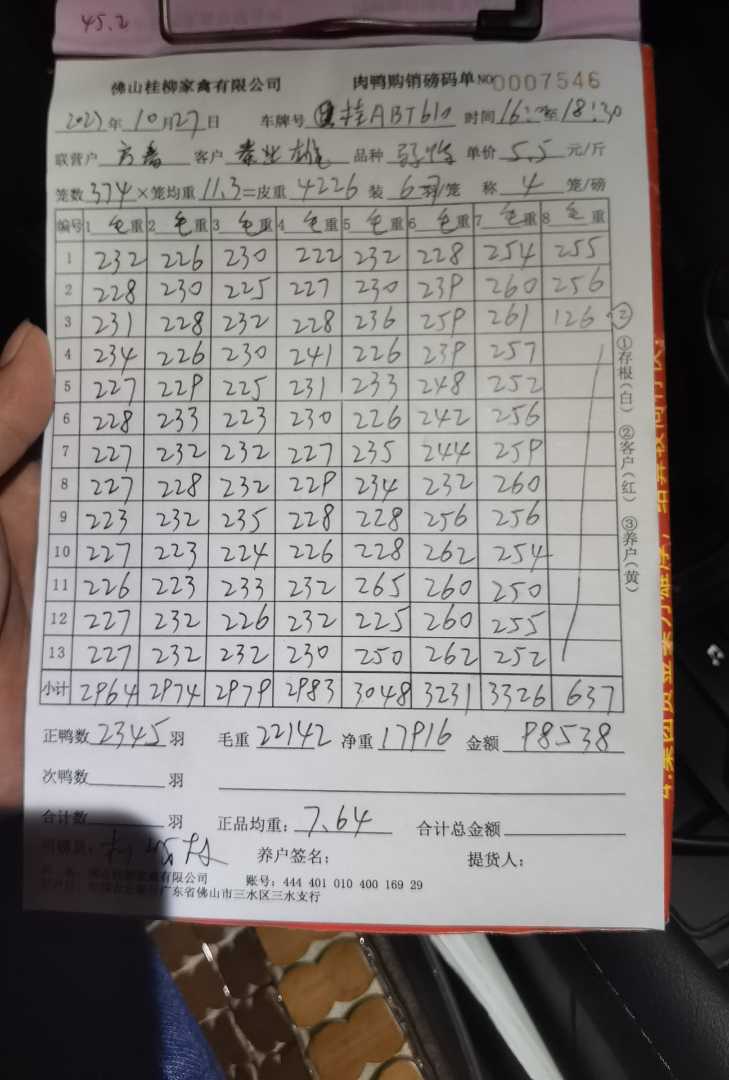 45.2
佛山桂柳家禽有限公司 肉鸭购销磅码单 NO 0007546
2023年10月27日 车牌号 桂ABT610 时间16: 至18:30
联营户 客户 秦业雄 品种 单价5.5元/斤
笼数374×笼均重11.3=皮重4226 装6羽/笼 称4笼/磅
编号 1毛重 2毛重 3毛重 4毛重 5毛重 6毛重 7毛重 8毛重
1 232 226 230 222 232 228 254 255
2 228 230 225 227 230 239 260 256
3 231 228 232 228 236 259 261 126 ②
4 234 226 230 241 226 239 257
5 227 229 225 231 233 248 252
6 228 233 223 230 226 242 256
7 227 232 232 227 235 244 259
8 227 228 232 229 234 232 260
9 223 232 235 228 228 256 256
10 227 223 224 226 228 262 254
11 226 223 233 232 265 260 250
12 227 232 226 232 225 260 255
13 227 232 232 230 250 262 252
小计 2964 2974 2979 2983 3048 3231 3326 637
①存根(白) ②客户(红) ③养户(黄)
正鸭数2345羽 毛重22142 净重17916 金额98538
次鸭数 羽
合计数 羽 正品均重:7.64 合计总金额
养户签名: 提货人:
佛山桂柳家禽有限公司 账号:444 401 010 400 169 29
广东省佛山市三水区三水支行